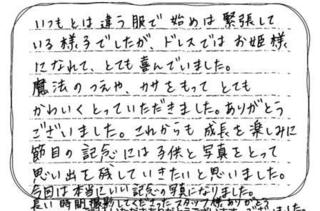 いつもとは違う服で始めは緊張して
いる様子でしたが、ドレスではお姫様
になれて、とても喜んでいました。
魔法のつえや、カサをもってとても
かわいくとっていただきました。ありがとう
ございました。これからも成長を楽しみに
節目の記念には子供と写真をとって
思い出を残していきたいと思いました。
今回は本当にいい記念の写真になりました。
長い時間撮影してくださったスタッフ様ありがとう
ございました。